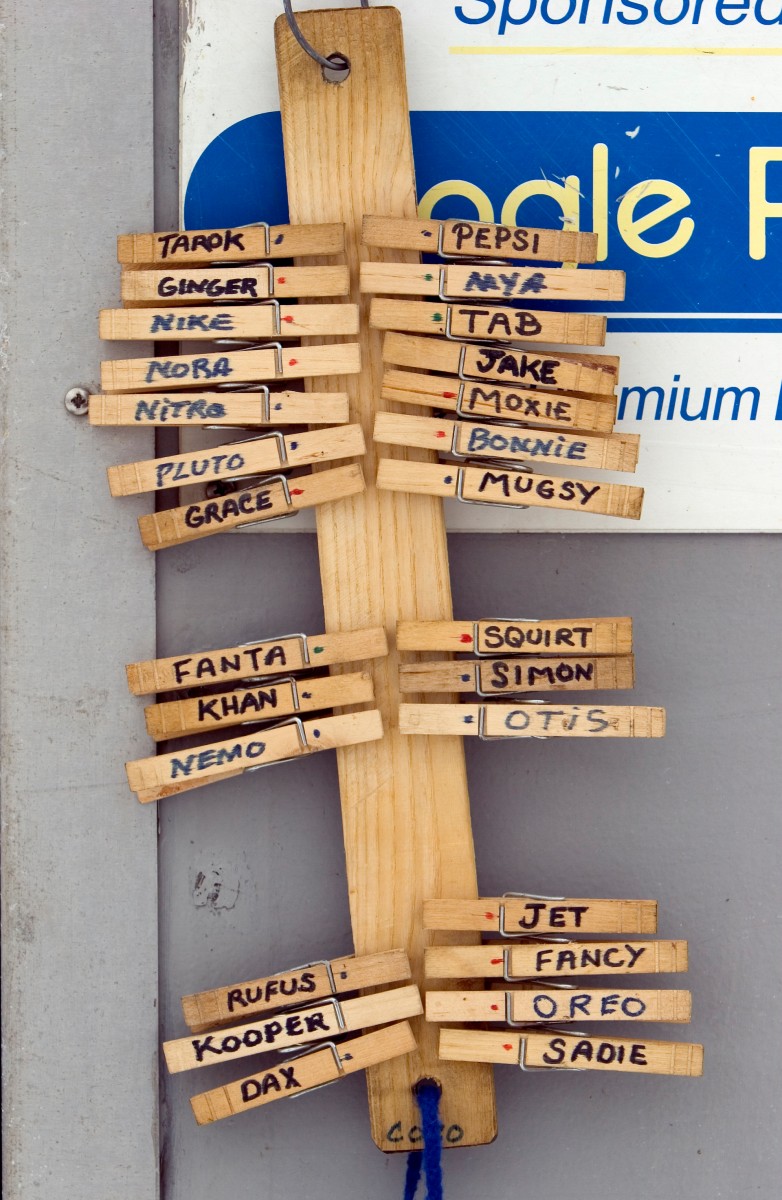 Sponsored
ogle
mium
TAROK
GINGER
NIKE
NORA
NITRO
PLUTO
GRACE
PEPSI
MYA
TAB
JAKE
MOXIE
BONNIE
MUGSY
FANTA
KHAN
NEMO
SQUIRT
SIMON
OTIS
RUFUS
KOOPER
DAX
JET
FANCY
OREO
SADIE